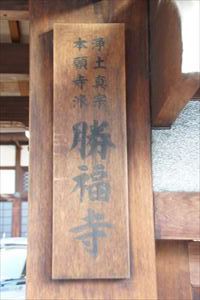 浄土真宗
本願寺派
勝福寺